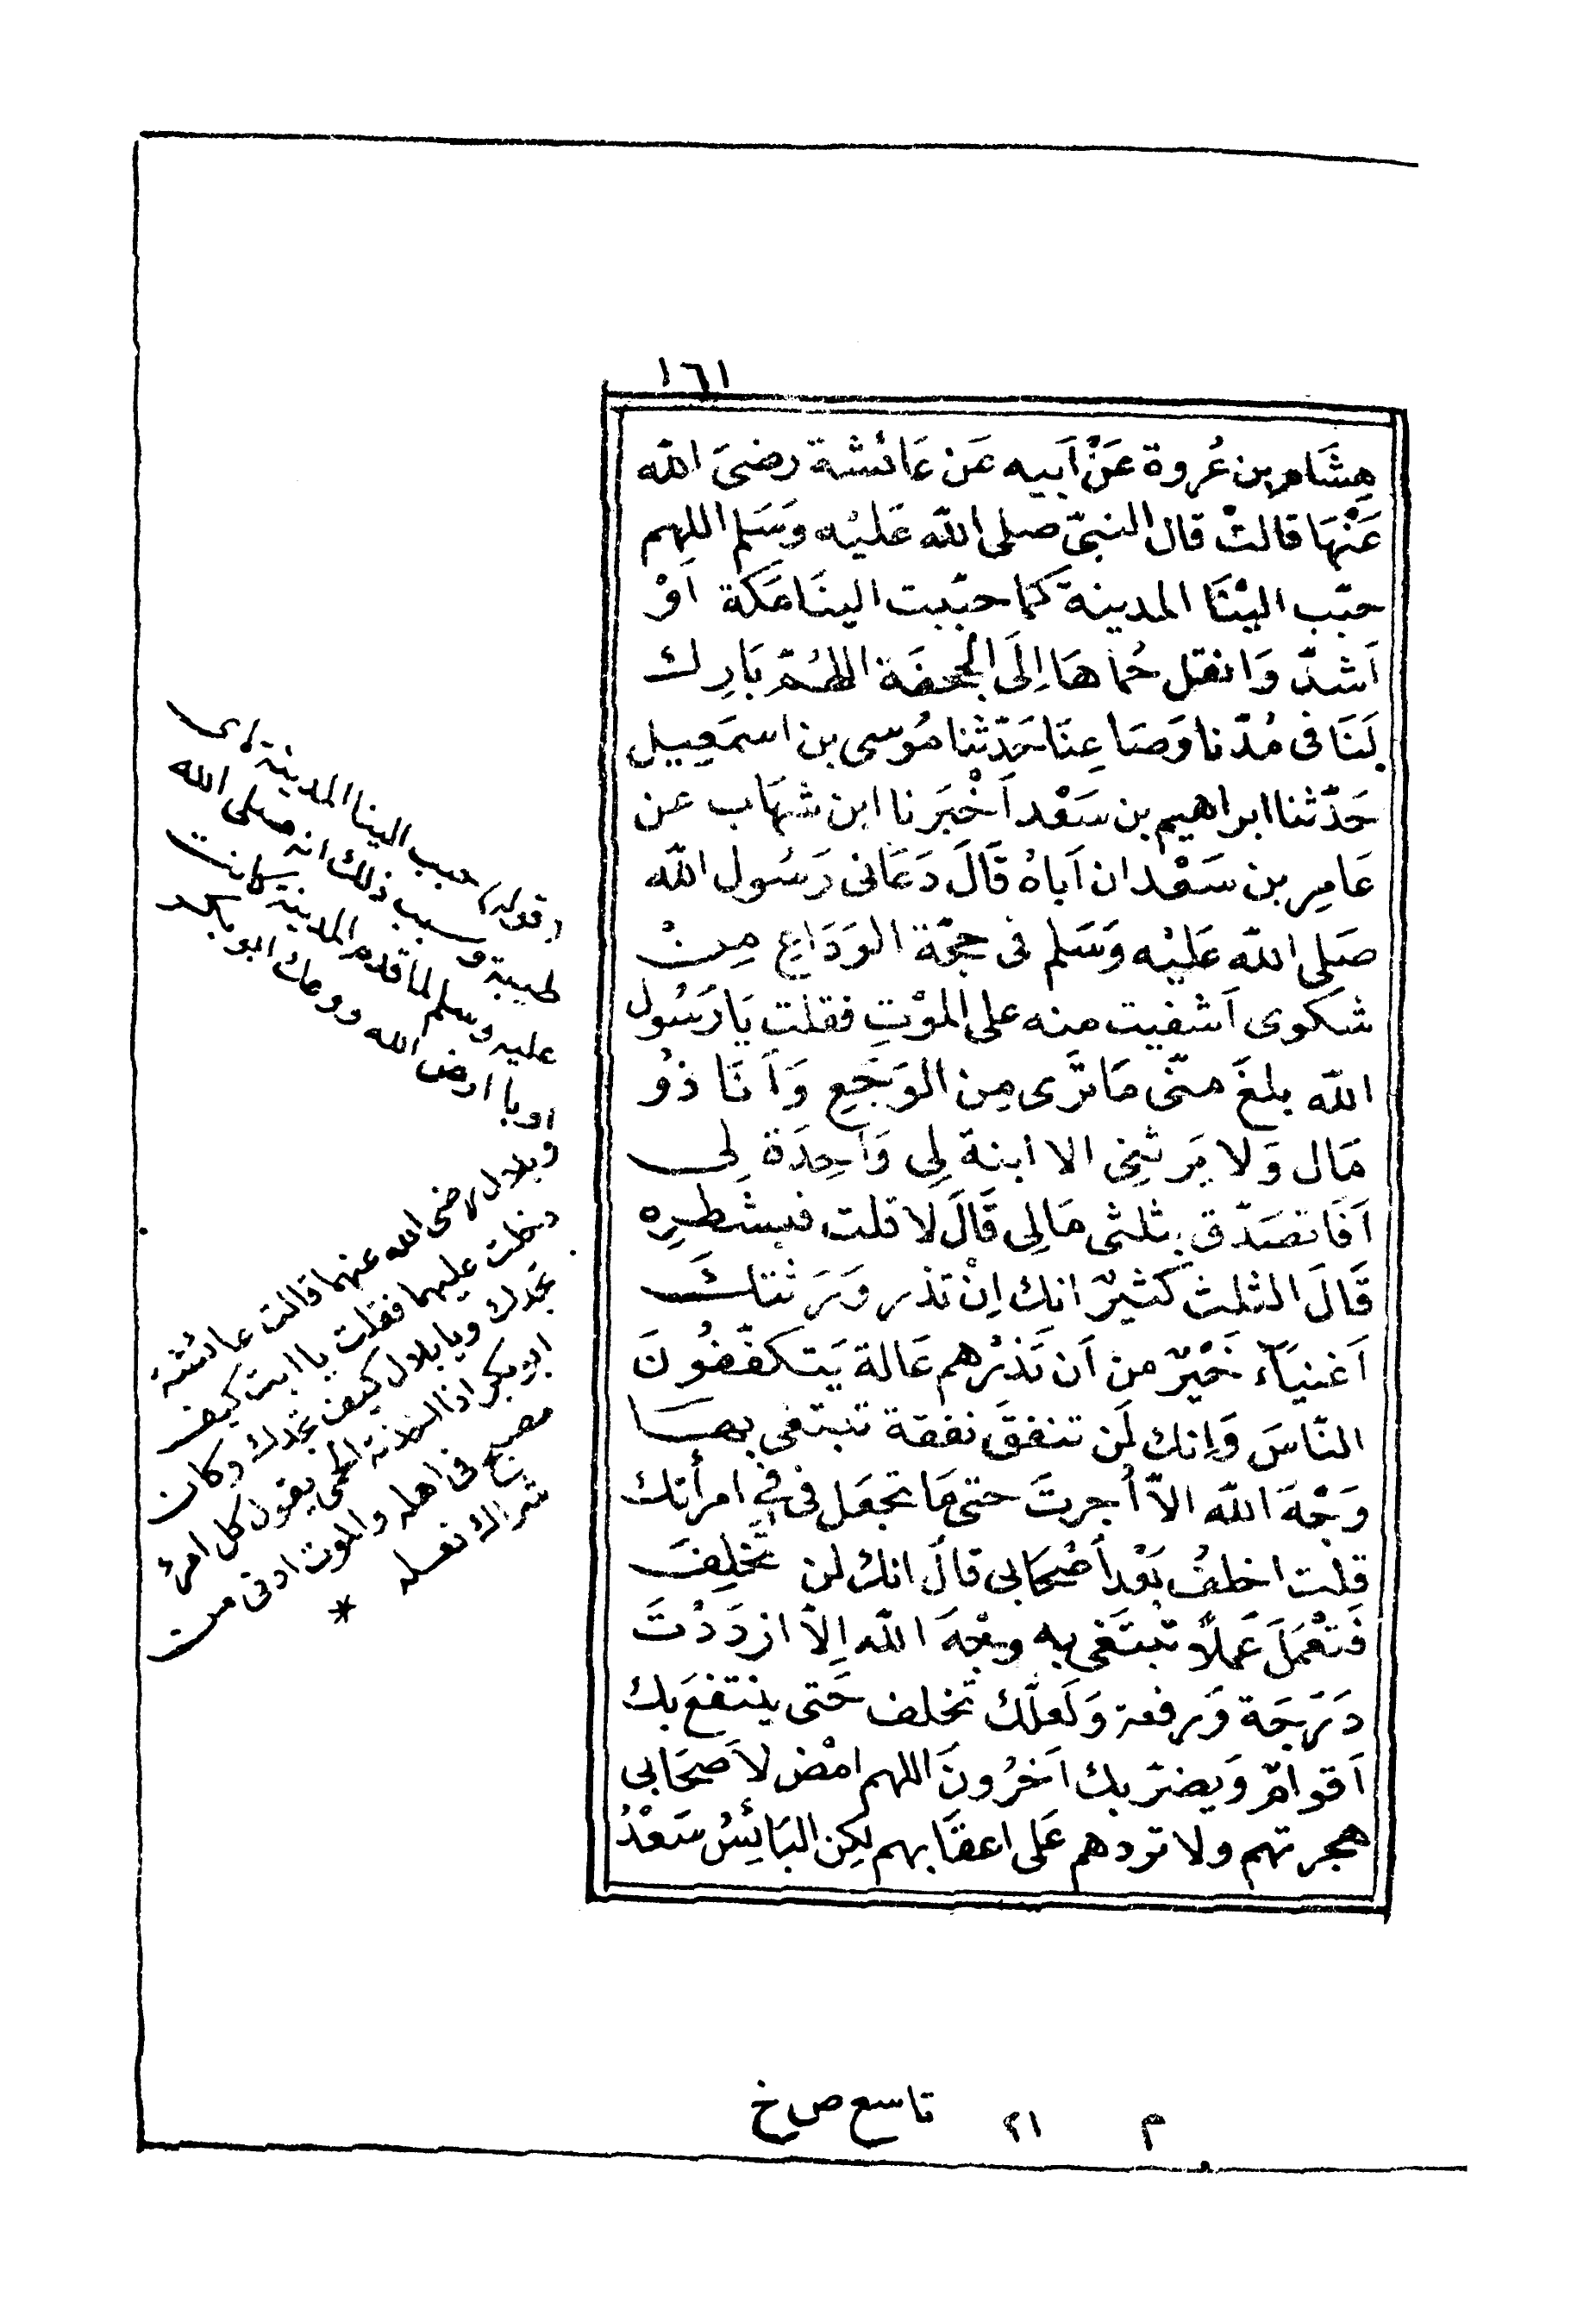 ١٦١
هِشَام بن عُروة عَنْ اَبيه عَن عَائشة رضىَ الله
عَنْهَا قالتْ قال النبىّ صلى الله عَليْه وَسَلم اللهم
حبّب اليْنَا المدينة كَما حبّببت الينَا مَكة اَوْ
اَشدّ وَانقل حُماهَا اِلَى الجحفَة اللهُمّ بَارِك
لَنَا فى مُدّنا وَصَاعِنَا حَدّثنا مُوسى بن اسمَعِيل
حَدّثنا ابراهيم بن سَعْد اَخْبَرنا ابن شهَاب عن
عَامِر بن سَعْد ان اَباهُ قَالَ دَعَانى رَسُول الله
صَلى الله عَليْه وَسَلم فى حجّة الوَدَاعِ مِنْ
شكوى اَشفيت منه على الموْتِ فقلت يَا رَسُول
الله بلغَ منّى مَا تَرَى مِن الوَجَعِ وَاَنَا ذُو
مَال وَلا يَرثنِى الا ابنة لِى وَاحِدَة لِى
اَفَاتصَدّق بثلثى مَالِى قَالَ لا قلت فبشطرِه
قَالَ الثلث كَثيرٌ انك اِنْ تذر وَرَثتكَ
اَغنيَآء خَيْرٌ من اَن تَذرُهم عَالة يَتكفّفُونَ
النّاسَ وَاِنك لَن تنفقَ نفقة تبتغى بهَا
وَجْهَ الله الاّ اُجرتَ حتى مَا تجعَل فى فِى امرأتك
قلت اخلفُ بَعْد اَصْحَابى قالَ انك لن تخلِفَ
فَتعْمَلَ عَملاً تبتَغى به وجْهَ الله اِلاّ ازدَدْتَ
دَرَجَة وَرفعة وَلَعلّك تخلف حَتى ينتفعَ بك
اَقوامٌ وَيضرّ بك اَخرُونَ اللهم امْض لاَصحَابى
هجرتهم ولا تردهم عَلى اعقابهم لكِن البَائِسُ سَعْدُ
(قوله) حبب الينا المدينة اى
طيبة وسبب ذلك انه صلى الله
عليه وسلم لما قدم المدينة كانت
اوبا ارض الله ووعك ابو بكر
وبلال رضى الله عنهما قالت عائشة
دخلت عليهما فقلت يا ابت كيف
تجدك ويا بلال كيف تجدك وكان
ابو بكر اذا اخذته الحمى يقول كل امرئ
مصبح فى اهله والموت ادنى من
شراك نعله *
م ٢١ تاسع ص خ